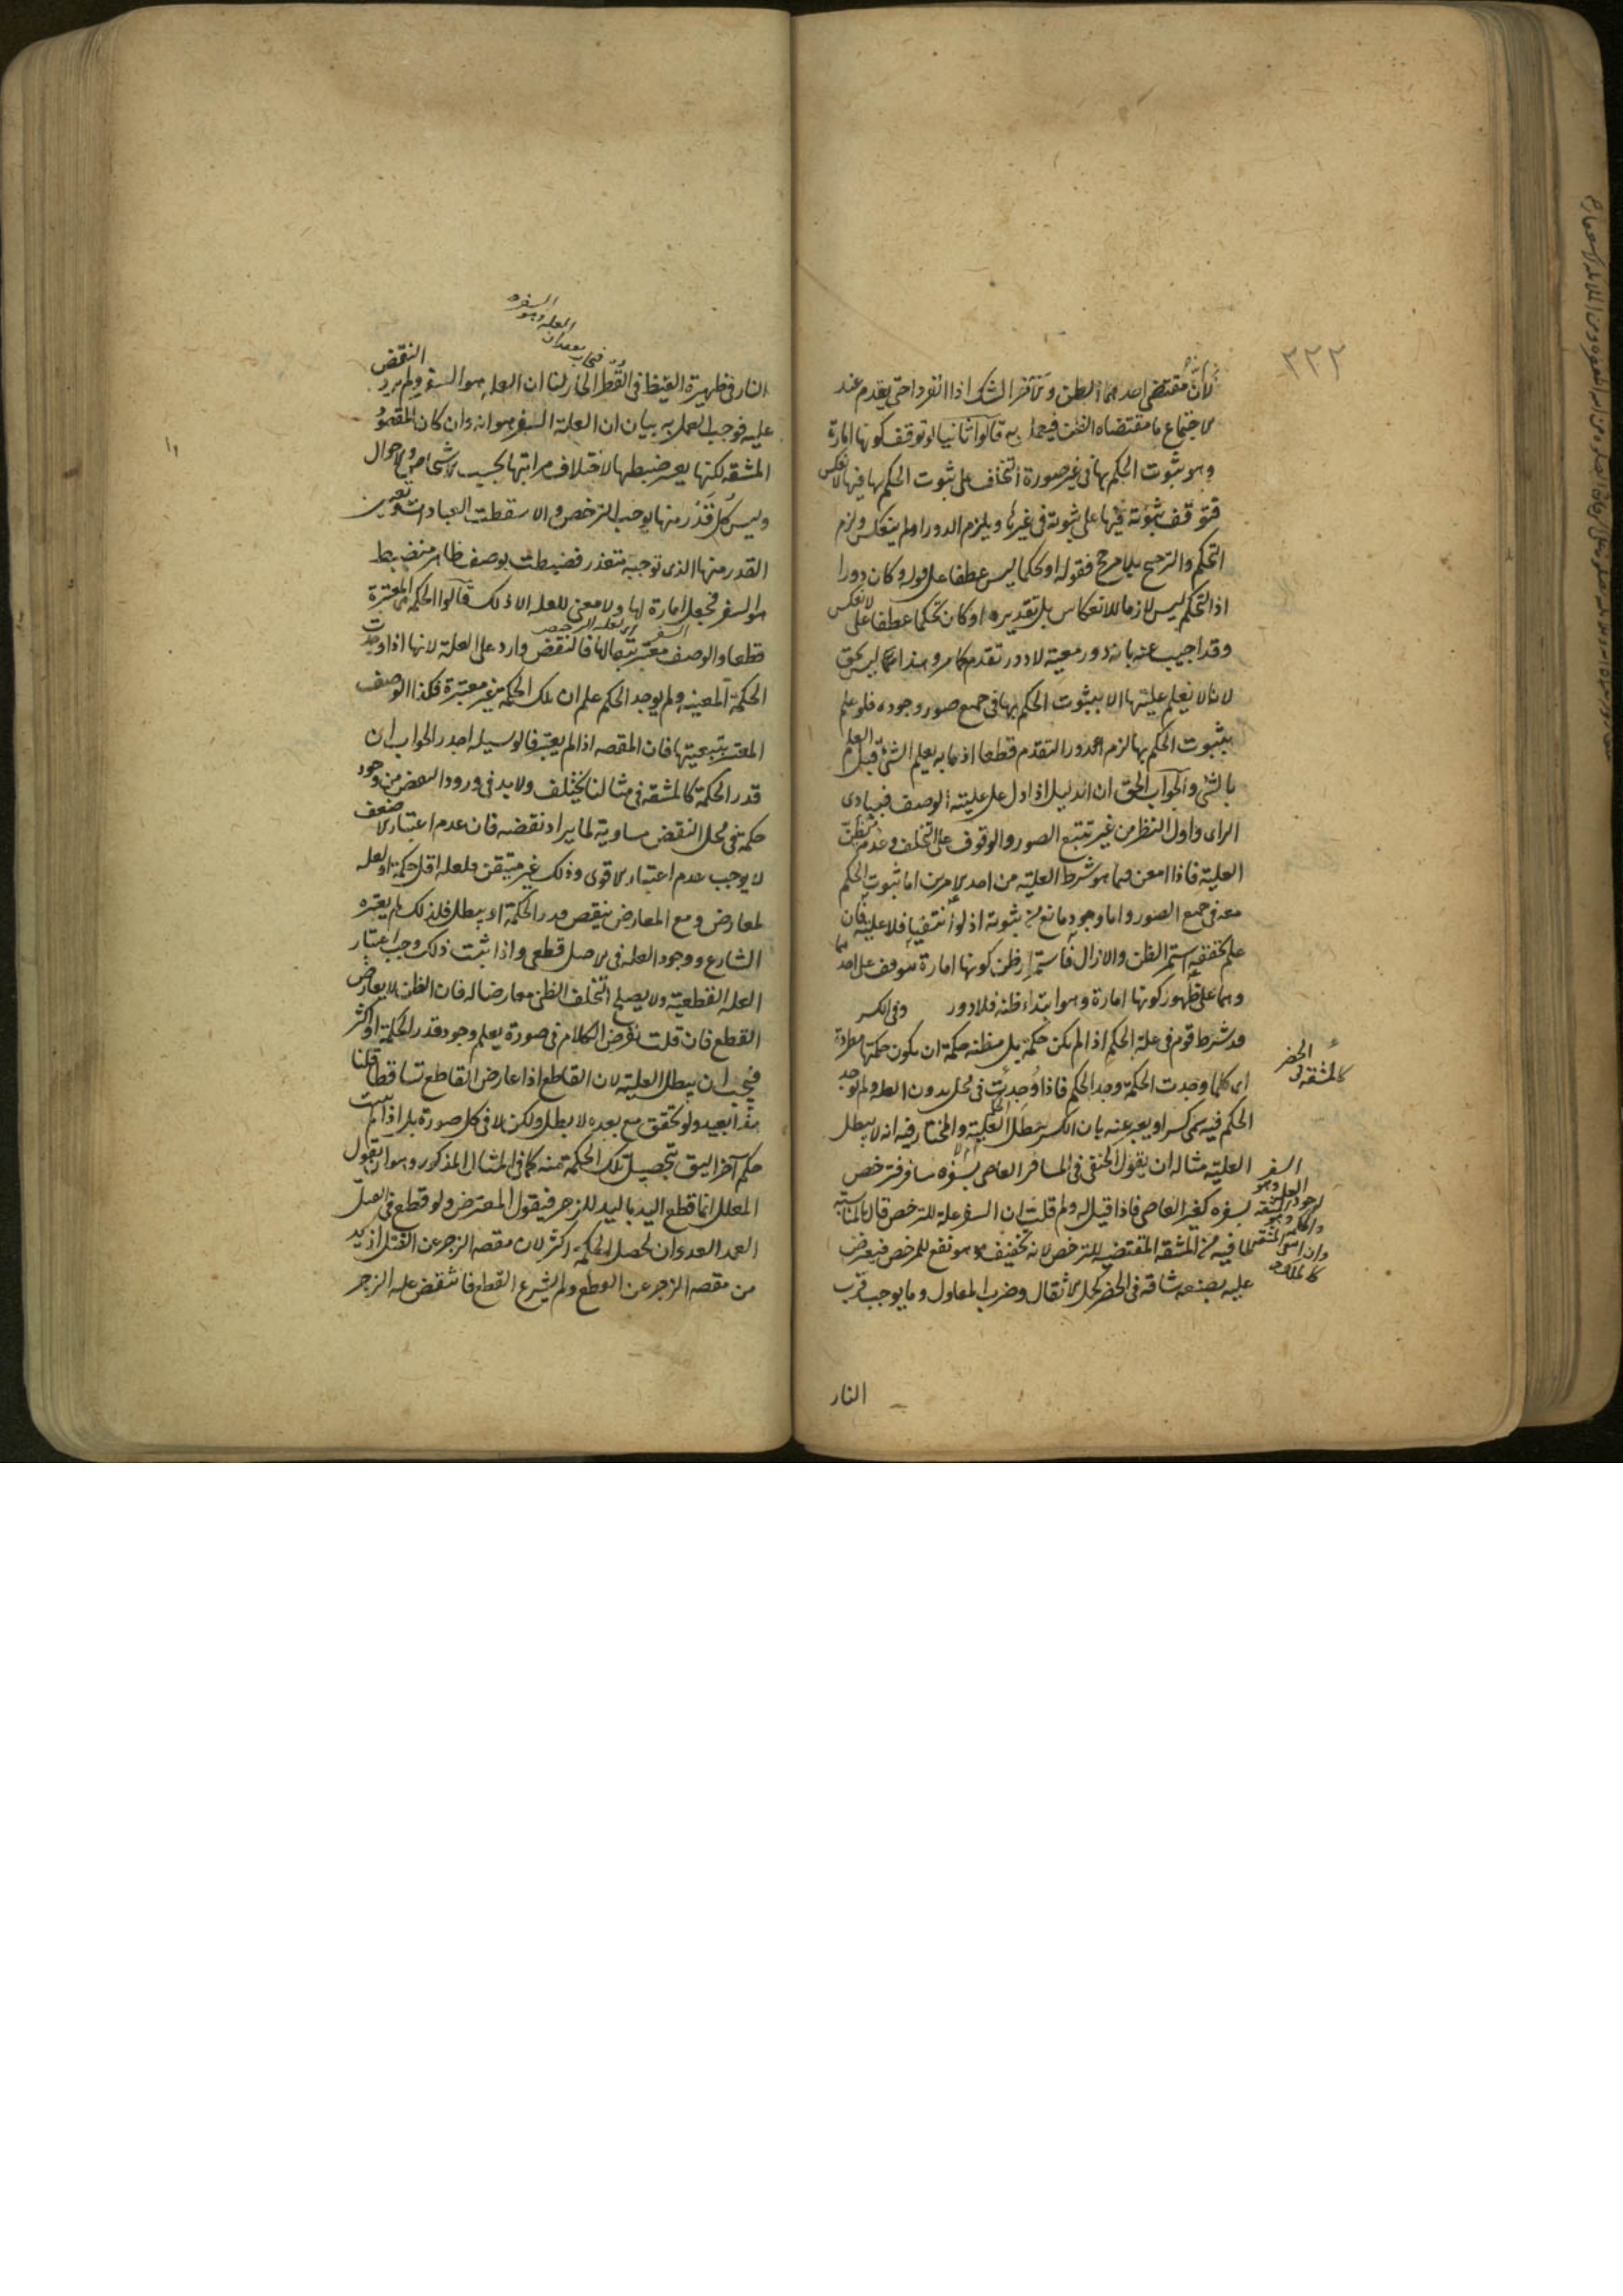 ٢٢٢
لان مقتضى احدهما الظن والاخر الشك اذا انفردا حتى يقدم عند
الاجتماع ما مقتضاه الظن فيعمل به قالوا ثانيا لو توقف كونها امارة
وهو ثبوت الحكم بها في غير صورة التخلف على ثبوت الحكم بها فيها لانعكس
فتوقف ثبوته فيها على ثبوته في غيرها ويلزم الدور او لم ينعكس ولزم
التحكم والترجيح بلا مرجح فقوله او تحكما ليس عطفا على قوله وكان دورا
اذ التحكم ليس لازما للانعكاس بل تقديره او كان تحكما عطفا على لانعكس
وقد اجيب عنه بانه دور معية لا دور تقدم كما مر وهذا ليس بحق
لانا لا نعلم عليتها الا بثبوت الحكم بها في جميع صور وجوده فلو علم
بثبوت الحكم بها لزم الدور التقدم قطعا اذ ما به يعلم الشئ قبل العلم
بالشئ والجواب الحق ان الدليل اذا دل على علية الوصف فببادى
الراى واول النظر من غير تتبع الصور والوقوف على التخلف وعدمه يظن
العلية فاذا امعن فيما هو شرط العلية من احد الامرين اما ثبوت الحكم
معه في جميع الصور واما وجود مانع من ثبوته اذ لو انتفيا فلا علية فان
علم تحققه استمر الظن والا زال فاستمرار ظن كونها امارة يتوقف على احدهما
وهما على ظهور كونها امارة وهو ابتداء ظنه فلا دور وفى الكسر
قد شرط قوم في علة الحكم اذا لم يكن حكمة بل مظنة حكمة ان يكون حكمتها مطردة
اى كلما وجدت الحكمة وجد الحكم فاذا وجدت في محل بدون العلة ولم يوجد
الحكم فيه سمى كسرا ويعبر عنه بان الكسر يبطل العلية والمختار فيه انه لا يبطل
العلية مثاله ان يقول الحنفى في المسافر العاصى بسفره مسافر فترخص
بسفره كغير العاصى فاذا قيل له ولم قلت ان السفر علة للترخص قال بالمناسبة
لما فيه من المشقة المقتضية للترخص لانه تخفيف وهو نفع للمرخص فيعترض
عليه بصنعة شاقة في الحضر كحمل الاثقال وضرب المعاول وما يوجب قرب
كالمشقة في الحضر
النار
النار في ظهيرة القيظ في القطر الحار لنا ان العلة هو السفر ولم يرد النقض
عليه فوجب العمل به بيان ان العلة السفر هو انه وان كان المقصود
المشقة لكنها يعسر ضبطها لاختلاف مراتبها بحسب الاشخاص والاحوال
وليس كل قدر منها يوجب الترخص والا سقطت العبادات وتعيين
القدر منها الذى توجبه متعذر فضبطت بوصف ظاهر منضبط
هو السفر فجعل امارة لها ولا معنى للعلة الا ذلك قالوا الحكمة هى المعتبرة
قطعا والوصف معتبر تبعا لها فالنقض وارد على العلة لانها اذا وجدت
الحكمة المعينة ولم يوجد الحكم علم ان تلك الحكمة غير معتبرة فكذا الوصف
المعتبر بتبعيتها فان المقصد اذا لم يعتبر فالوسيلة اجدر الجواب ان
قدر الحكمة كالمشقة في مثالنا يختلف ولا بد في ورود النقض من وجود
حكمة في محل النقض مساوية لما يراد نقضه فان عدم اعتبار الاضعف
لا يوجب عدم اعتبار الاقوى وذلك غير متيقن ولعله اقل حكمة او لعله
لمعارض ومع المعارض ينقص قدر الحكمة او يبطل فلذلك لم يعتبره
الشارع ووجود العلة في الاصل قطعى واذا ثبت ذلك وجب اعتبار
العلة القطعية ولا يصلح التخلف الظنى معارضا له فان الظن لا يعارض
القطع فان قلت نفرض الكلام في صورة يعلم وجود قدر الحكمة او اكثر
فيجب ان يبطل العلية لان القاطع اذا عارض القاطع تساقطا قلنا
هذا بعيد ولو تحقق مع بعده لا يبطل ولكن لا في كل صورة بل اذا لم يثبت
حكم آخر اليق بتحصيل تلك الحكمة منه كما في المثال المذكور وهو ان يقول
المعلل انما قطع اليد باليد للزجر فيقول المعترض ولو قطع في القتل
العمد العدوان لحصل الحكمة اكثر لان مقصد الزجر عن القتل ازيد
من مقصد الزجر عن القطع ولم يشرع القطع فانتقض علة الزجر